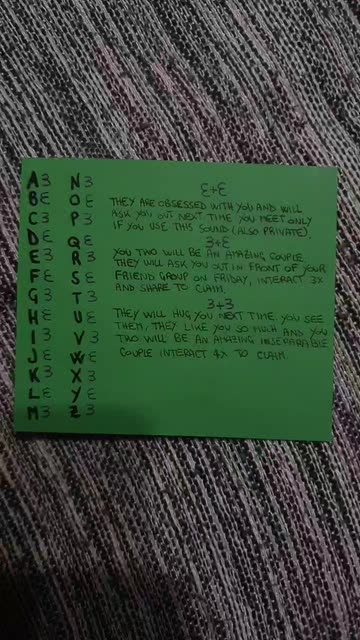 A3 N3
Bε Oε
C3 P3
Dε Qε
E3 R3
Fε Sε
G3 T3
Hε Uε
I3 V3
Jε Wε
K3 X3
Lε Yε
M3 Z3
ε+ε
THEY ARE OBSESSED WITH YOU AND WILL
ASK YOU OUT NEXT TIME YOU MEET ONLY
IF YOU USE THIS SOUND (ALSO PRIVATE)
3+ε
YOU TWO WILL BE AN AMAZING COUPLE.
THEY WILL ASK YOU OUT IN FRONT OF YOUR
FRIEND GROUP ON FRIDAY, INTERACT 3X
AND SHARE TO CLAIM.
3+3
THEY WILL HUG YOU NEXT TIME YOU SEE
THEM, THEY LIKE YOU SO MUCH AND YOU
TWO WILL BE AN AMAZING INSEPARABLE
COUPLE INTERACT 4X TO CLAIM.